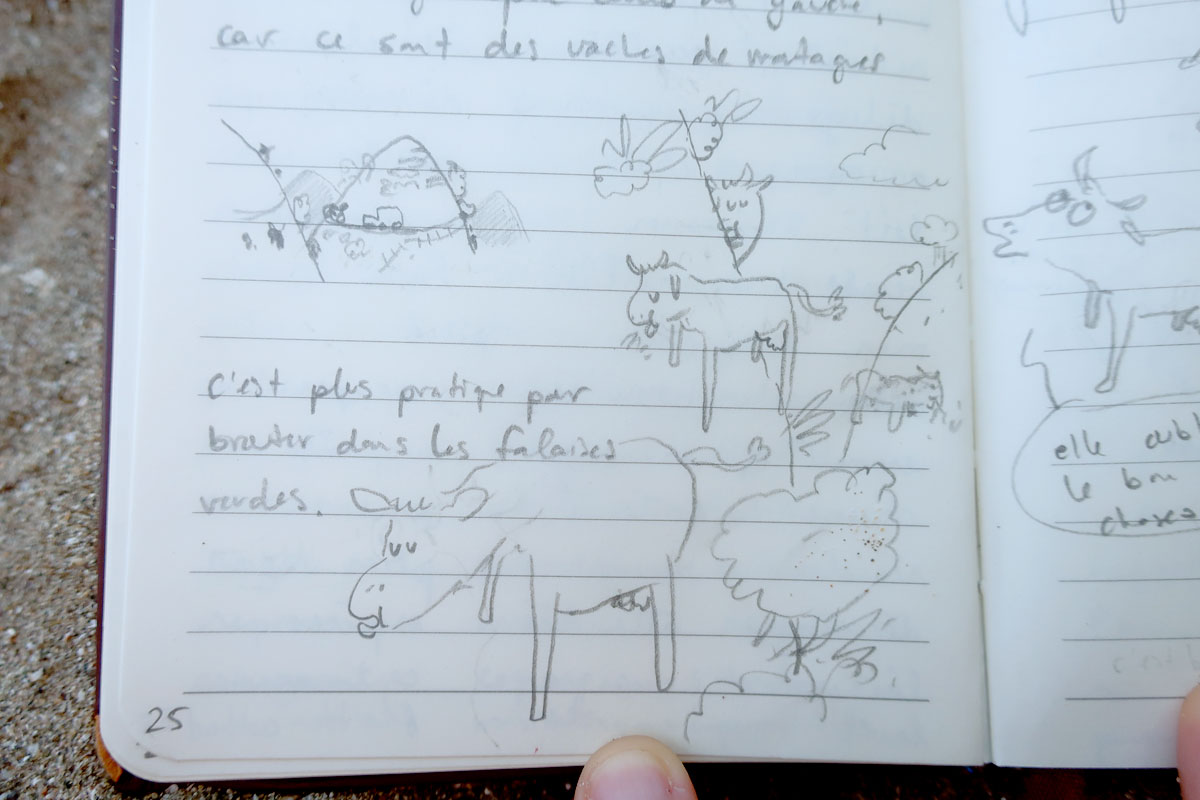 gauche,
car ce sont des vaches de montagnes
c'est plus pratique pour
brouter dans les falaises
vertes.
25
elle oubl
le bon
choses
c'est